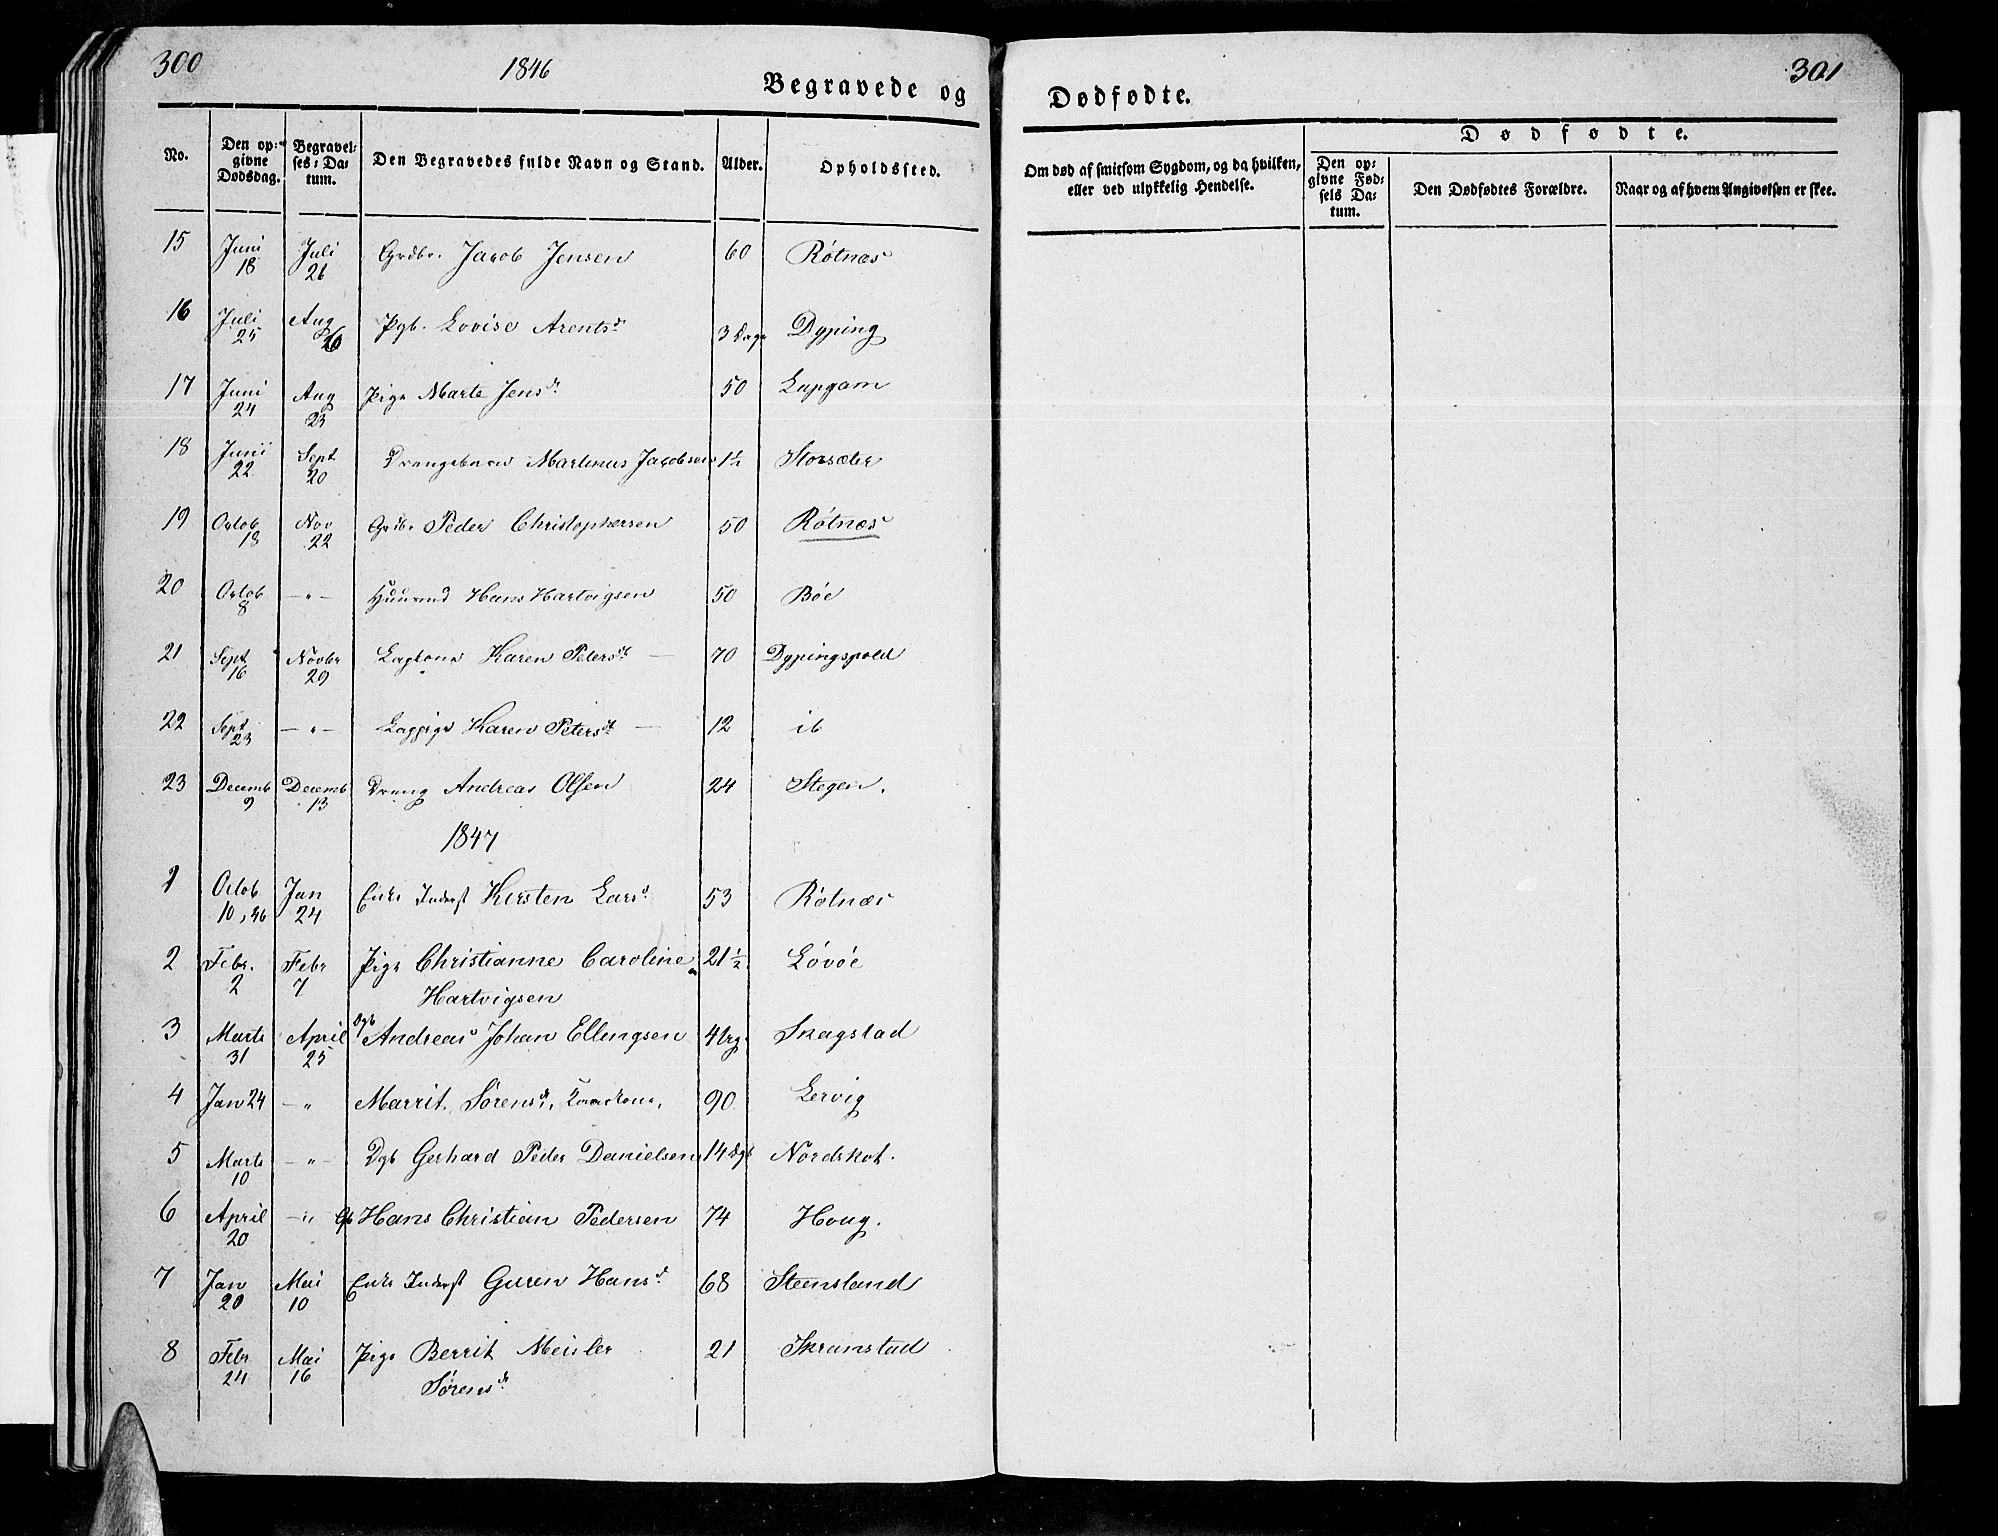 300
1846
Begravede og
Dødfødte.
301
No.
Den opgivne Dødsdag.
Begravelses-Datum.
Den Begravedes fulde Navn og Stand.
Alder.
Opholdssted.
Om død af smitsom Sygdom, og da hvilken, eller ved ulykkelig Hendelse.
Dødfødte.
Den opgivne Fødsels Datum.
Den Dødfødtes Forældre.
Naar og af hvem Angivelsen er skee.
15 Juni 18 Juli 26 Grdbr. Jacob Jensen 60 Røtnæs
16 Juli 25 Aug Pgb. Lovise Arentsd 3 Dage Dyping
17 Juni 24 Aug 23 Pige Marte Jensd 50 Lapgam
18 Junii 22 Sept 20 Drengebarn Martinus Jacobsen 1½ Storsæter
19 Octob 18 Nov 22 Grdbr Peder Christophersen 50 Røtnæs
20 Octob 8 — " — Huusmd Hans Hartvigsen 50 Bøe
21 Sept 16 Novbr 29 Lapkone Karen Petersd — 70 Dypingspold
22 Sept 23 — " — Lappige Karen Petersd — 12 ib
23 Decemb 9 Decemb 13 Dreng Andreas Olsen 24 Stegen.
1847
1 Octob 10, 46 Jan 24 Enke Inderst Kirsten Larsd 53 Røtnæs
2 Febr. 2 Febr 7 Pige Christianne Caroline 21½ Løvøe
Hartvigsen
3 Marts 31 April 25 Dgb Andreas Johan Ellingsen Skagstad
4 Jan 24 — " Marrit Sørensd, 90 Lervig
5 Marts 10 — " — Dgb Gerhard Peder Danielsen 14 Dge Nordskot.
6 April 20 — " Hans Christian Pedersen 74 Houg.
7 Jan 20 Mai 10 Enke Inderst Guren Hansd 68 Steensland
8 Febr 24 Mai 16 Pige Berrit Meisler 21 Skranstad
Sørensd